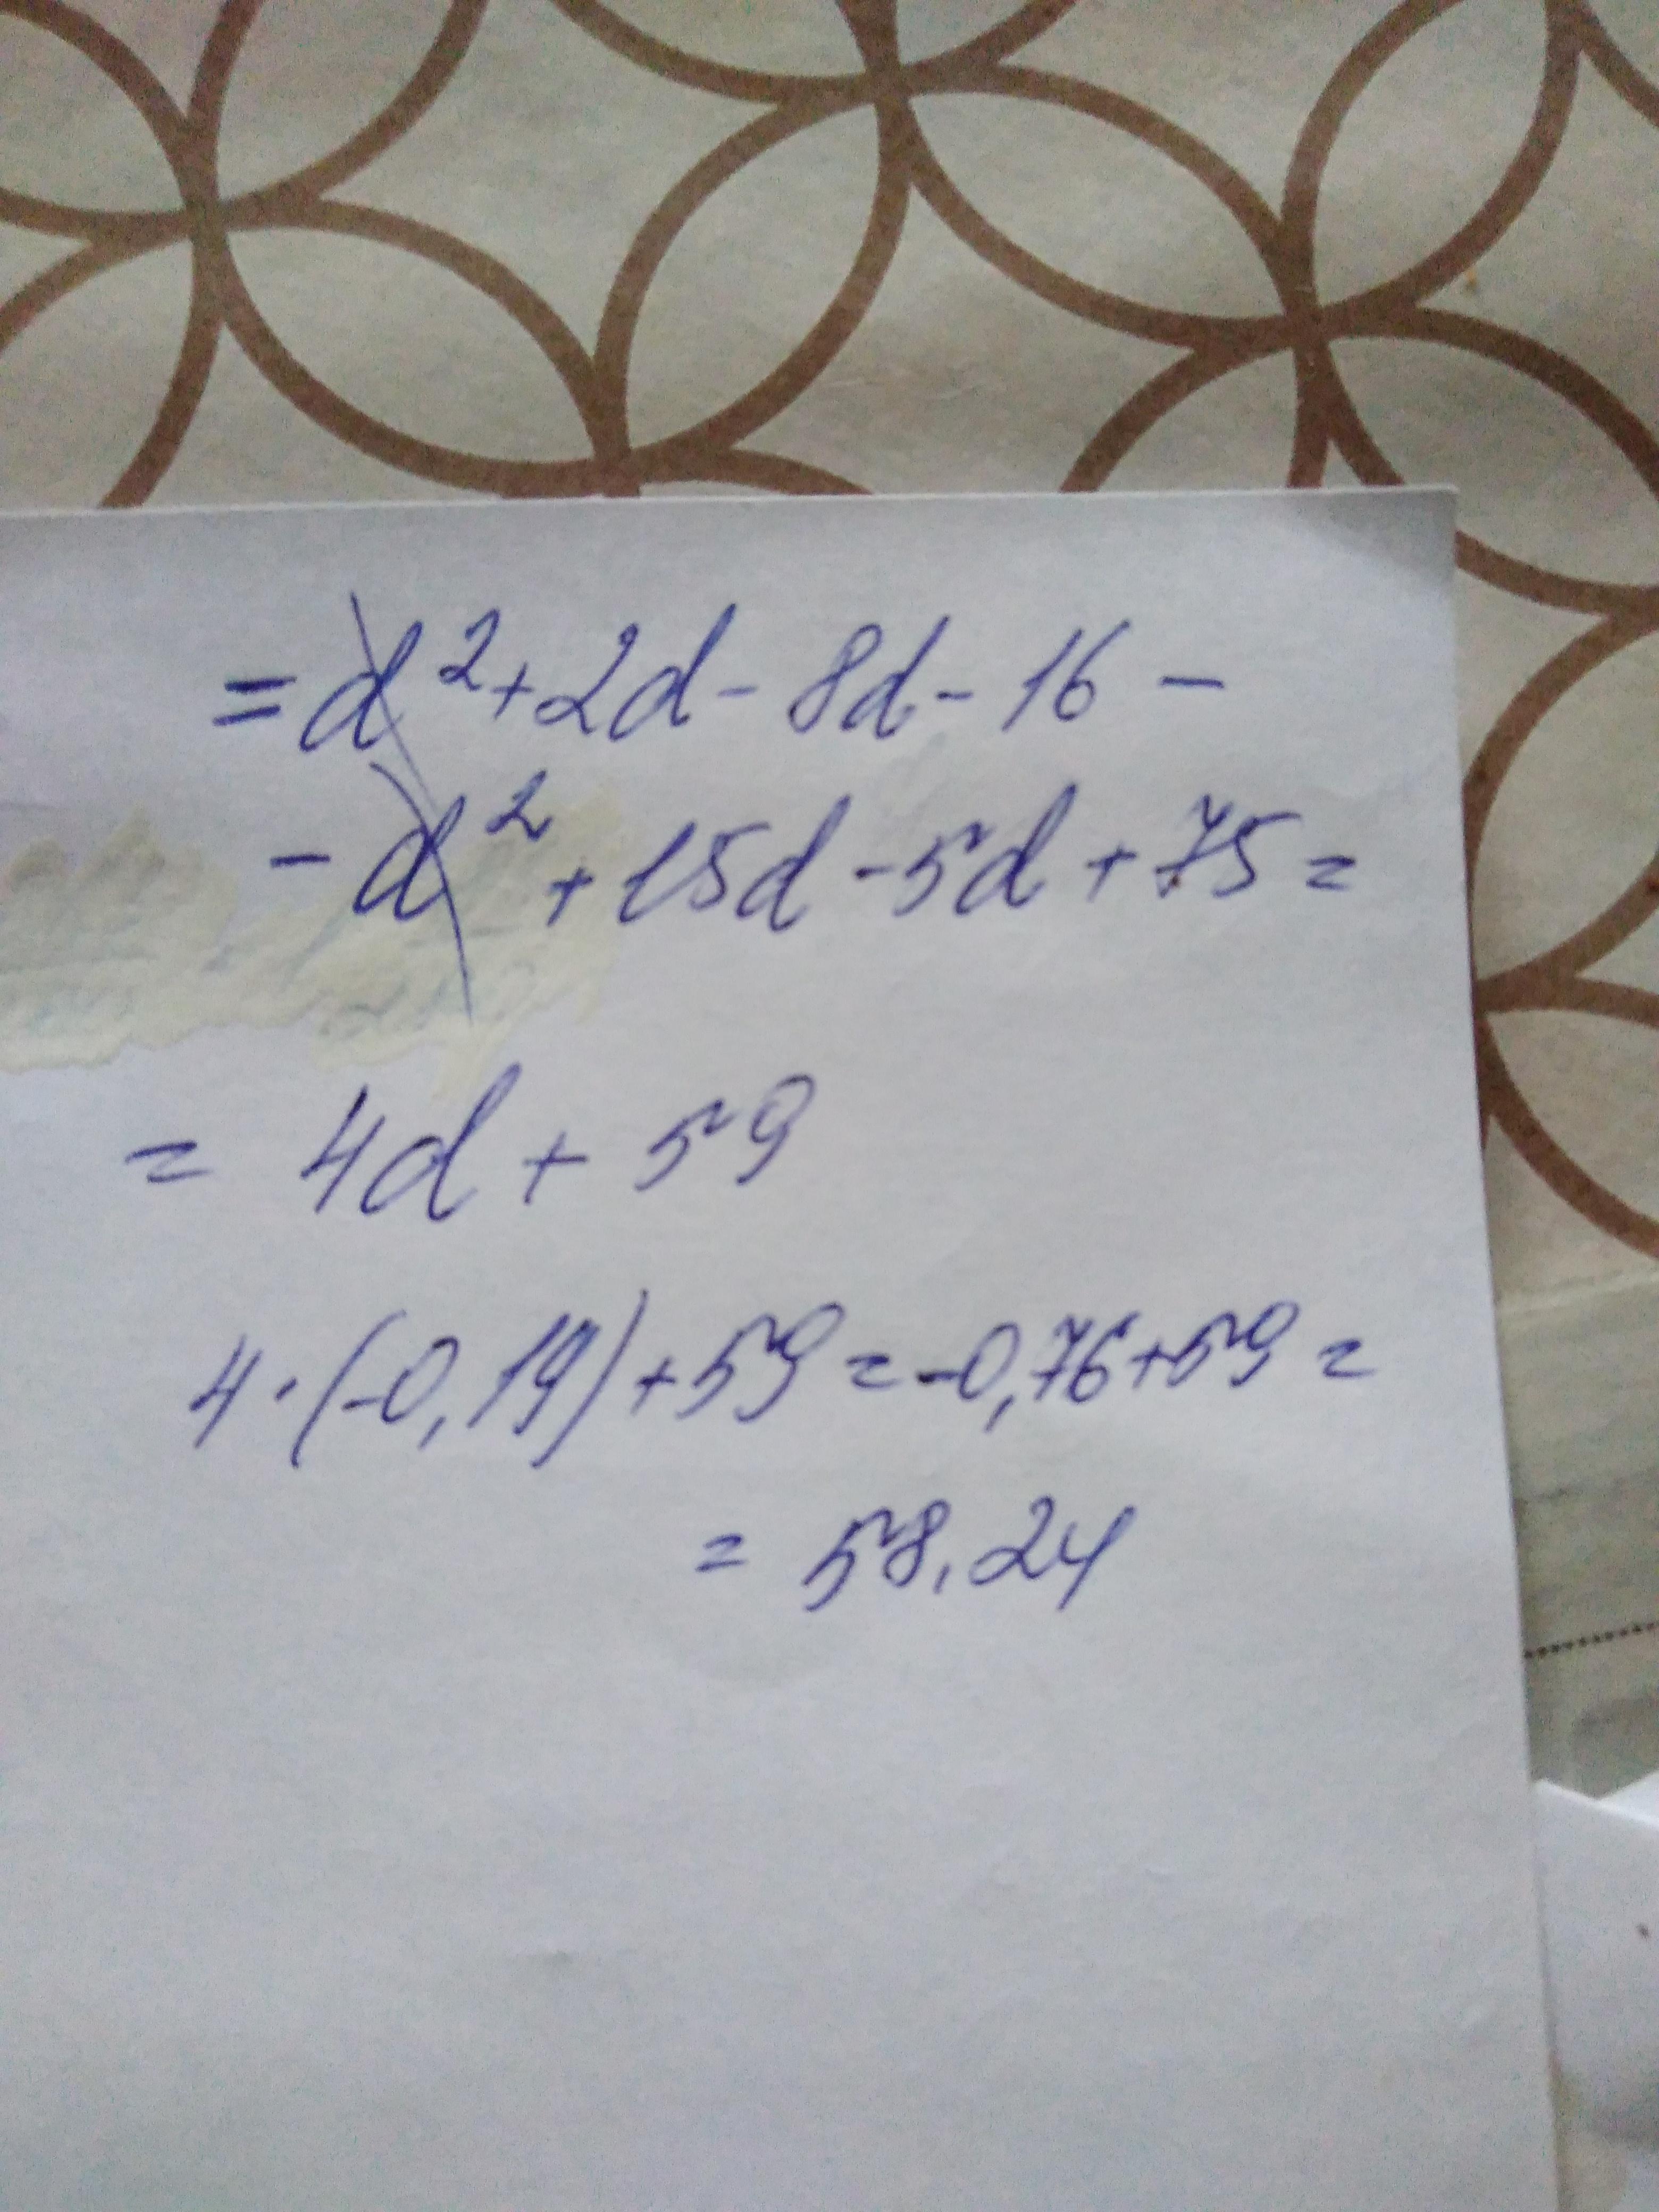 = d² + 2d - 8d - 16 -
- d² + 15d - 5d + 75 =
= 4d + 59
4 · (-0,19) + 59 = -0,76 + 59 =
= 58,24